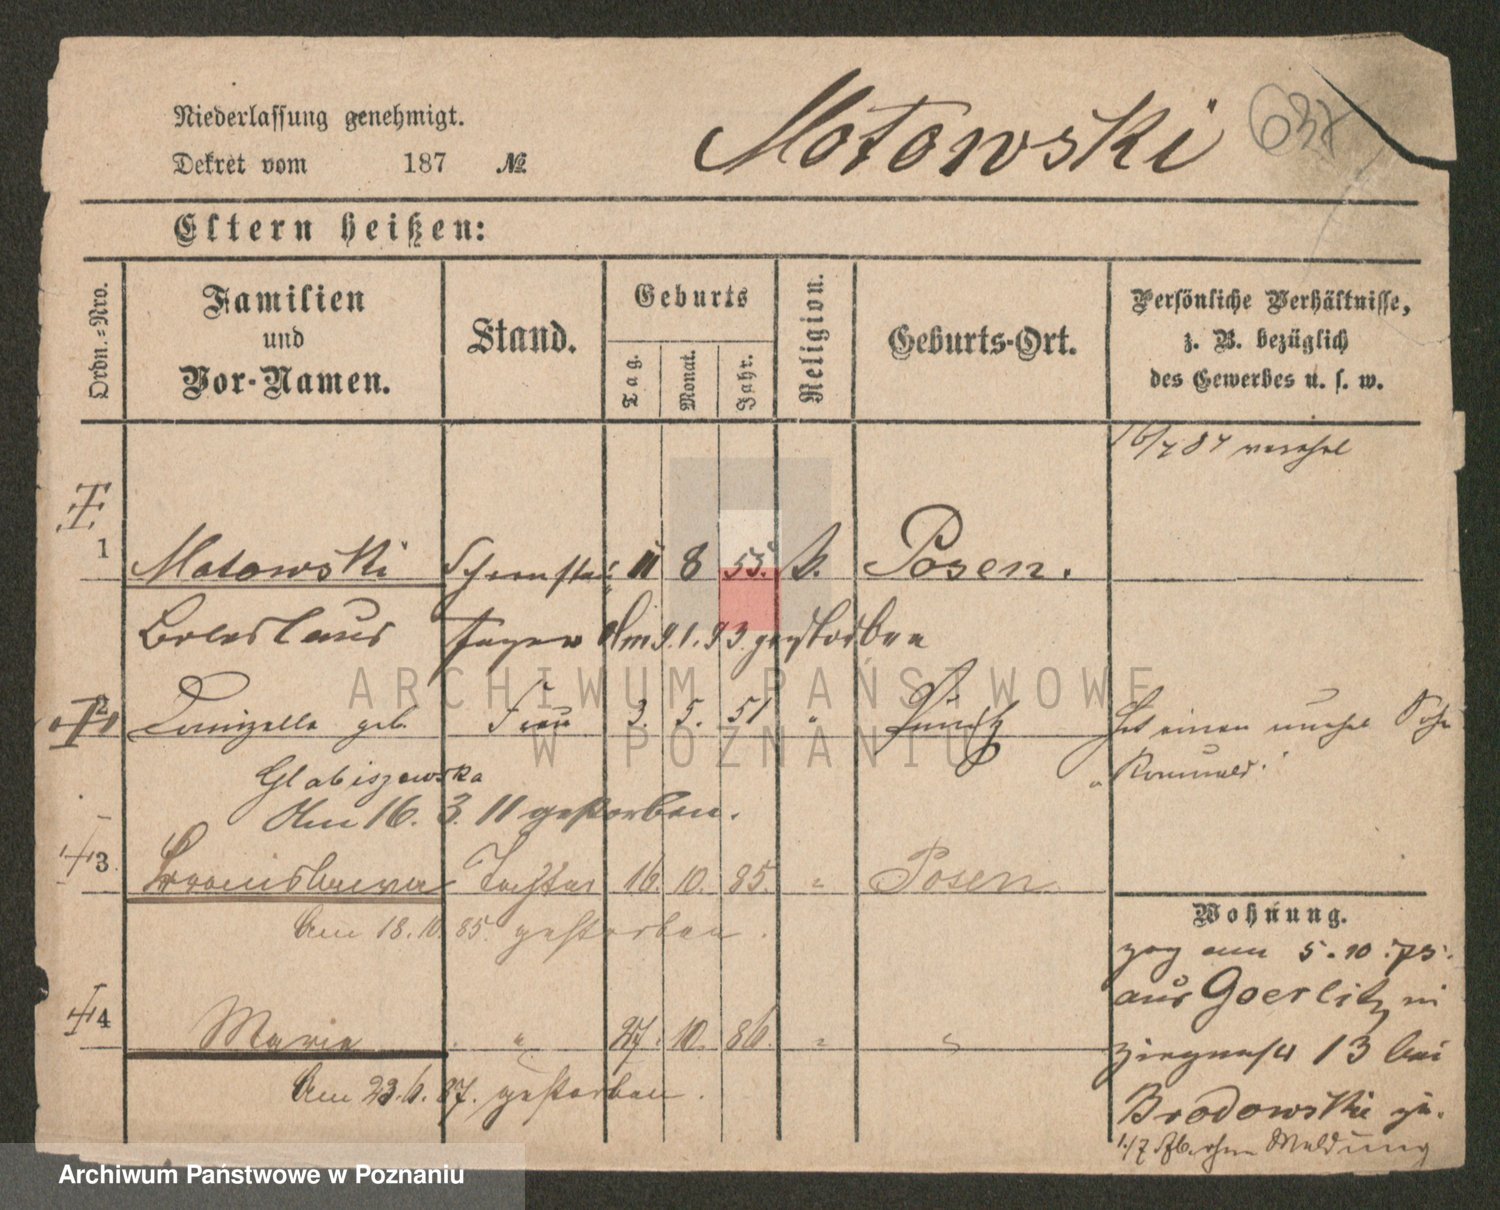 Niederlassung genehmigt.
Dekret vom 187 №
Motowski
637
Eltern heißen:
Ordn.-Nro.
Familien
und
Vor-Namen.
Stand.
Geburts
Tag.
Monat.
Jahr.
Religion.
Geburts-Ort.
Persönliche Verhältnisse,
z. B. bezüglich
des Gewerbes u. s. w.
16/7 87
1 Motowski 11 8 55. k. Posen.
Boleslaus Am 9.1.93. gestorben
2 geb. Frau 3. 5. 51 "
Hat einen unehel Sohn
"Romuald."
Glabiszewska
Am 16. 3. 11 gestorben.
3. Bronislawa Tochter 16. 10. 85. " Posen
Am 18. 10. 85. gestorben.
4 Maria " 27. 10. 86. " "
Am 23. 6. 87. gestorben.
Wohnung.
zog am 5. 10. 75.
aus Goerlitz n
13 bei
Brodowski zu.
1/7 ohne Meldung
ARCHIWUM PAŃSTWOWE
W POZNANIU
Archiwum Państwowe w Poznaniu